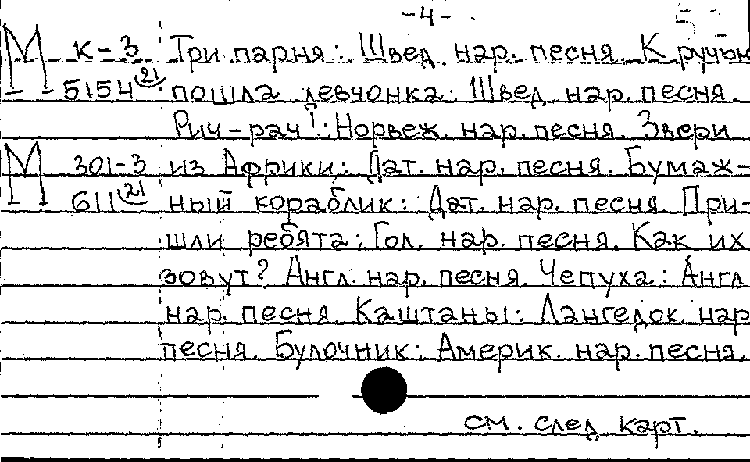 -4-
М К-3 Три парня: Швед. нар. песня. К ручью
5154(21) пошла девчонка: Швед. нар. песня.
Рич-рач!: Норвеж. нар. песня. Звери
М 301-3 из Африки: Дат. нар. песня. Бумаж-
611(21) ный кораблик: Дат. нар. песня. При-
шли ребята: Гол. нар. песня. Как их
зовут? Англ. нар. песня. Чепуха: Англ
нар. песня. Каштаны: Лангедок. нар
песня. Булочник: Америк. нар. песня.
см. след карт.